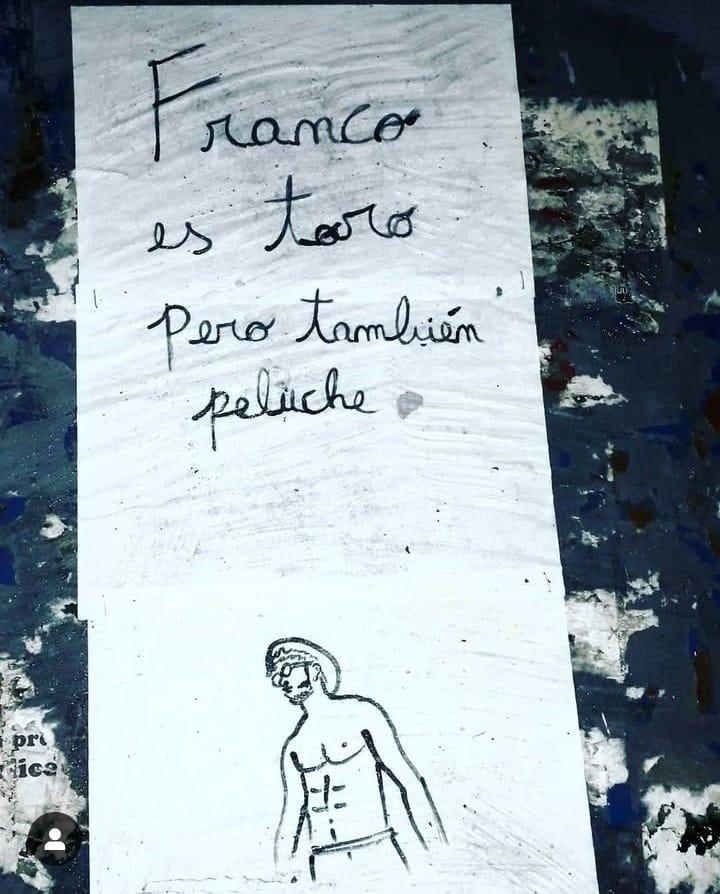 Franco
es toro
pero también
peluche
pr
lica